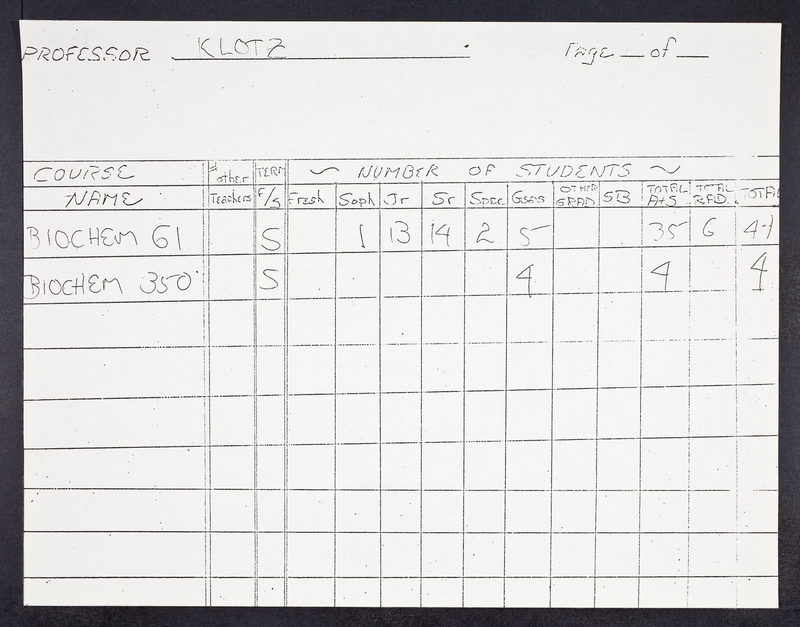 PROFESSOR KLOTZ Page __ of __
COURSE # other TERM ~ NUMBER OF STUDENTS ~
NAME Teachers F/S Fresh Soph Jr Sr Spec GSAS OTHER GRAD SB TOTAL A+S TOTAL RAD. TOTAL
BIOCHEM 61 S 1 13 14 2 5 35 6 41
BIOCHEM 350 S 4 4 4